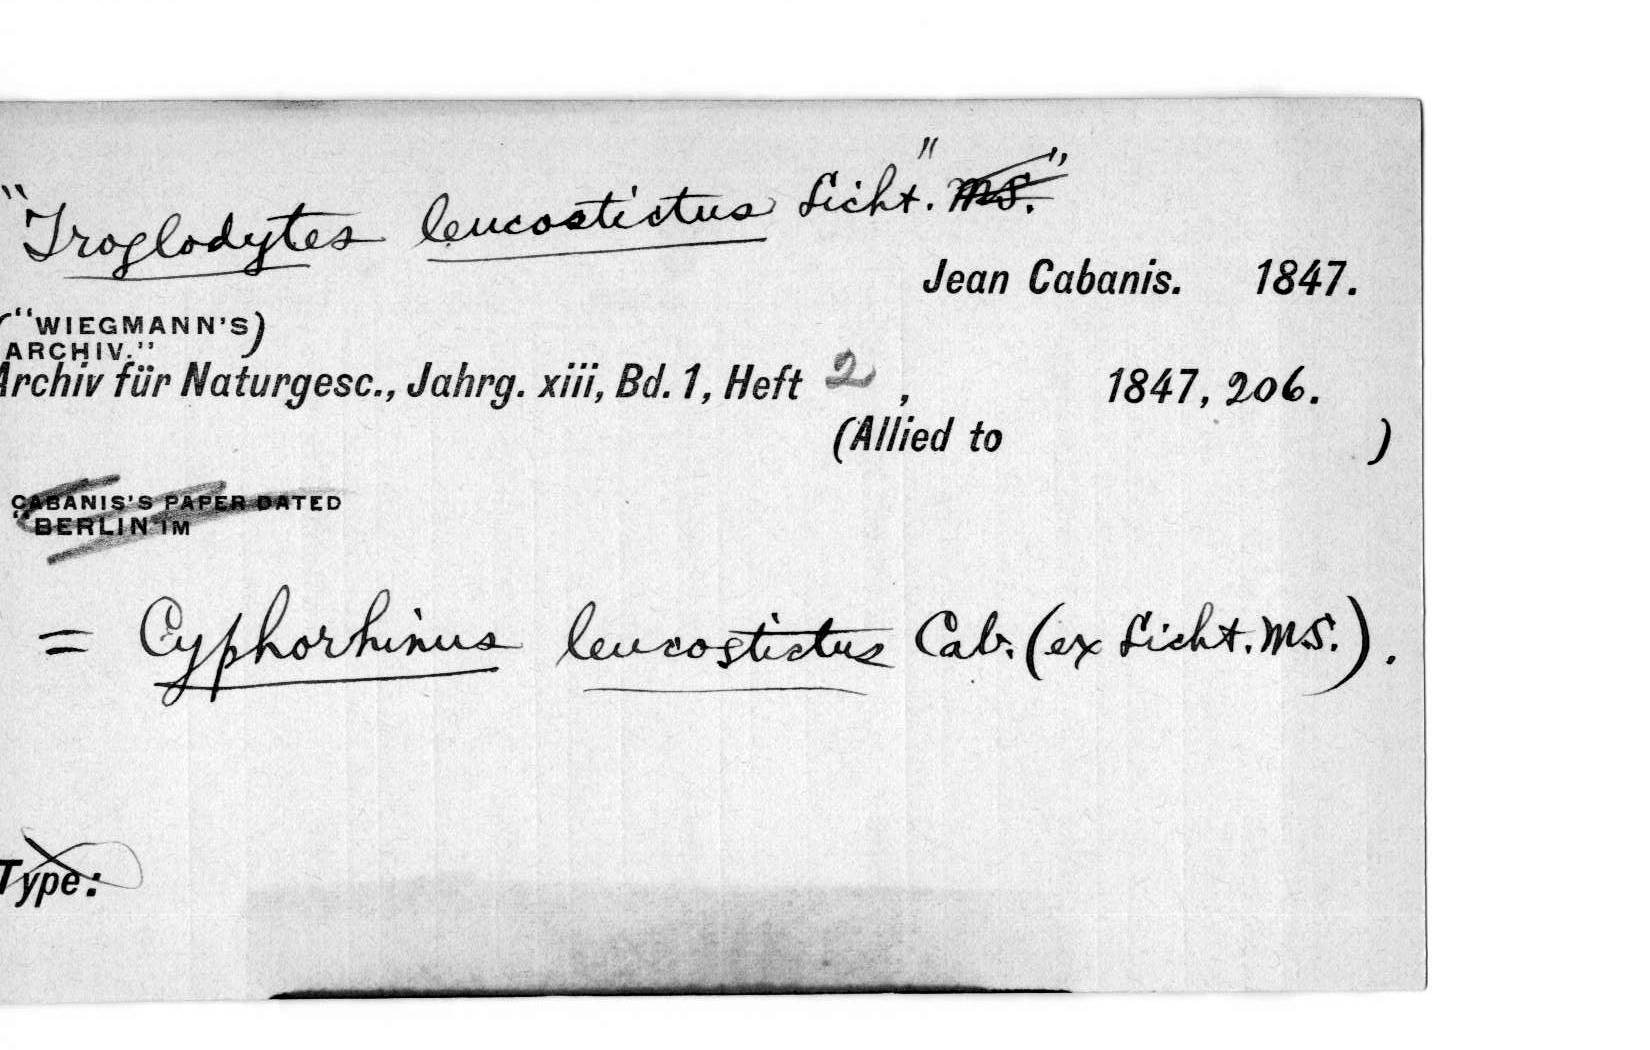 "Troglodytes leucostictus Licht." MS."
Jean Cabanis. 1847.
("WIEGMANN'S)
ARCHIV."
Archiv für Naturgesc., Jahrg. xiii, Bd. 1, Heft 2, 1847, 206.
(Allied to )
CABANIS'S PAPER DATED
"BERLIN IM
= Cyphorhinus leucostictus Cab. (ex Licht. MS.).
Type: